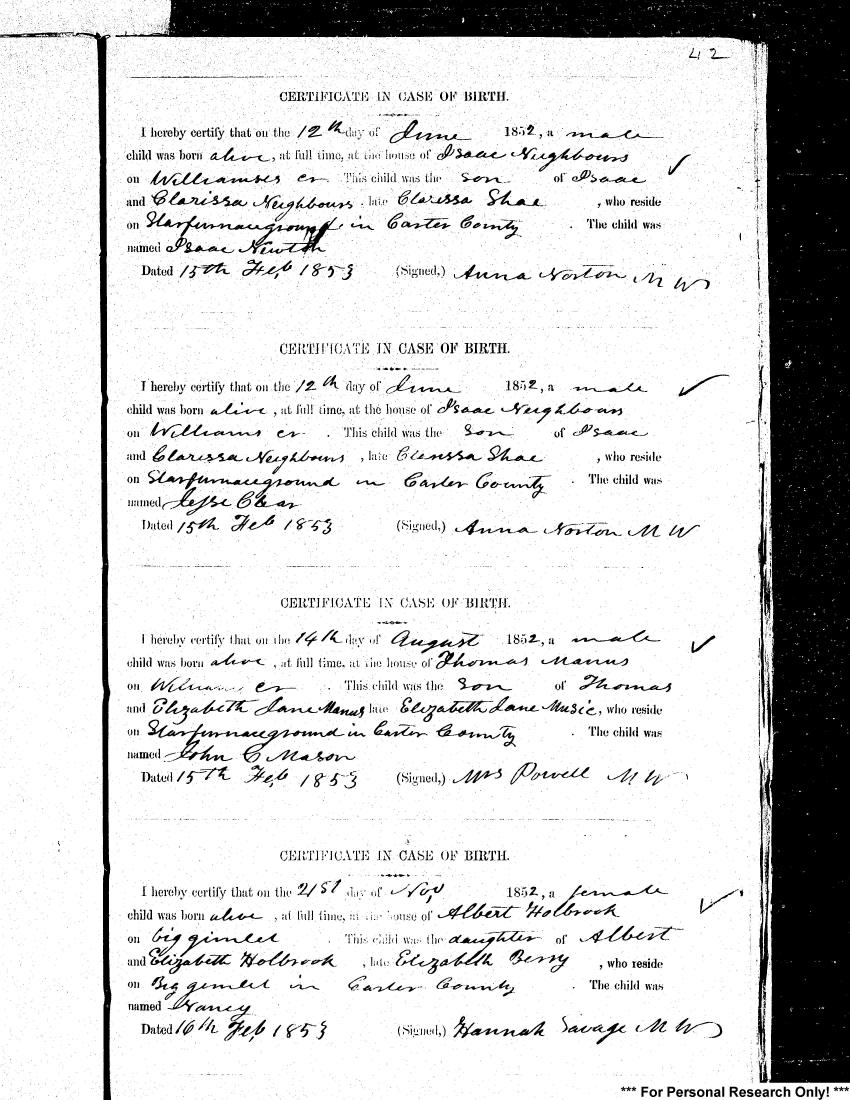 42
CERTIFICATE IN CASE OF BIRTH.
I hereby certify that on the 12th day of June 1852, a male
child was born alive, at full time, at the house of Isaac Neighbours
on Williamses cr. This child was the son of Isaac
and Clarissa Neighbours, late Clarissa Shae, who reside
on Starfurnaceground in Carter County. The child was
named Isaac Newton
Dated 15th Feb 1853 (Signed,) Anna Norton M W
CERTIFICATE IN CASE OF BIRTH.
I hereby certify that on the 12th day of June 1852, a male
child was born alive, at full time, at the house of Isaac Neighbours
on Williams cr. This child was the son of Isaac
and Clarissa Neighbours, late Clerissa Shae, who reside
on Starfurnaceground in Carter County. The child was
named Jesse Clear
Dated 15th Feb 1853 (Signed,) Anna Norton M W
CERTIFICATE IN CASE OF BIRTH.
I hereby certify that on the 14th day of August 1852, a male
child was born alive, at full time, at the house of Thomas Manus
on Williams cr. This child was the son of Thomas
and Elizabeth Jane Manus late Elizabeth Jane Music, who reside
on Starfurnaceground in Carter County. The child was
named John C Mason
Dated 15th Feb 1853 (Signed,) Mrs Powell M W
CERTIFICATE IN CASE OF BIRTH.
I hereby certify that on the 21st day of Nov, 1852, a female
child was born alive, at full time, at the house of Albert Holbrook
on big gimlet. This child was the daughter of Albert
and Elizabeth Holbrook, late Elizabeth Berry, who reside
on Big gimlet in Carter County. The child was
named Nancy
Dated 16th Feb 1853 (Signed,) Hannah Savage M W
*** For Personal Research Only! ***